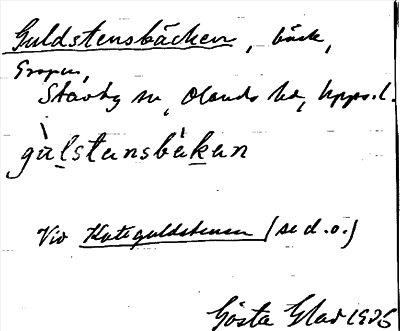 Guldstensbäcken, bäck,
Gropen,
Stavby sn, Olands hd, Upps.l.
gùlstensbä̀ken
Vid Katiguldstenen (se d.o.)
Gösta Glad 1936